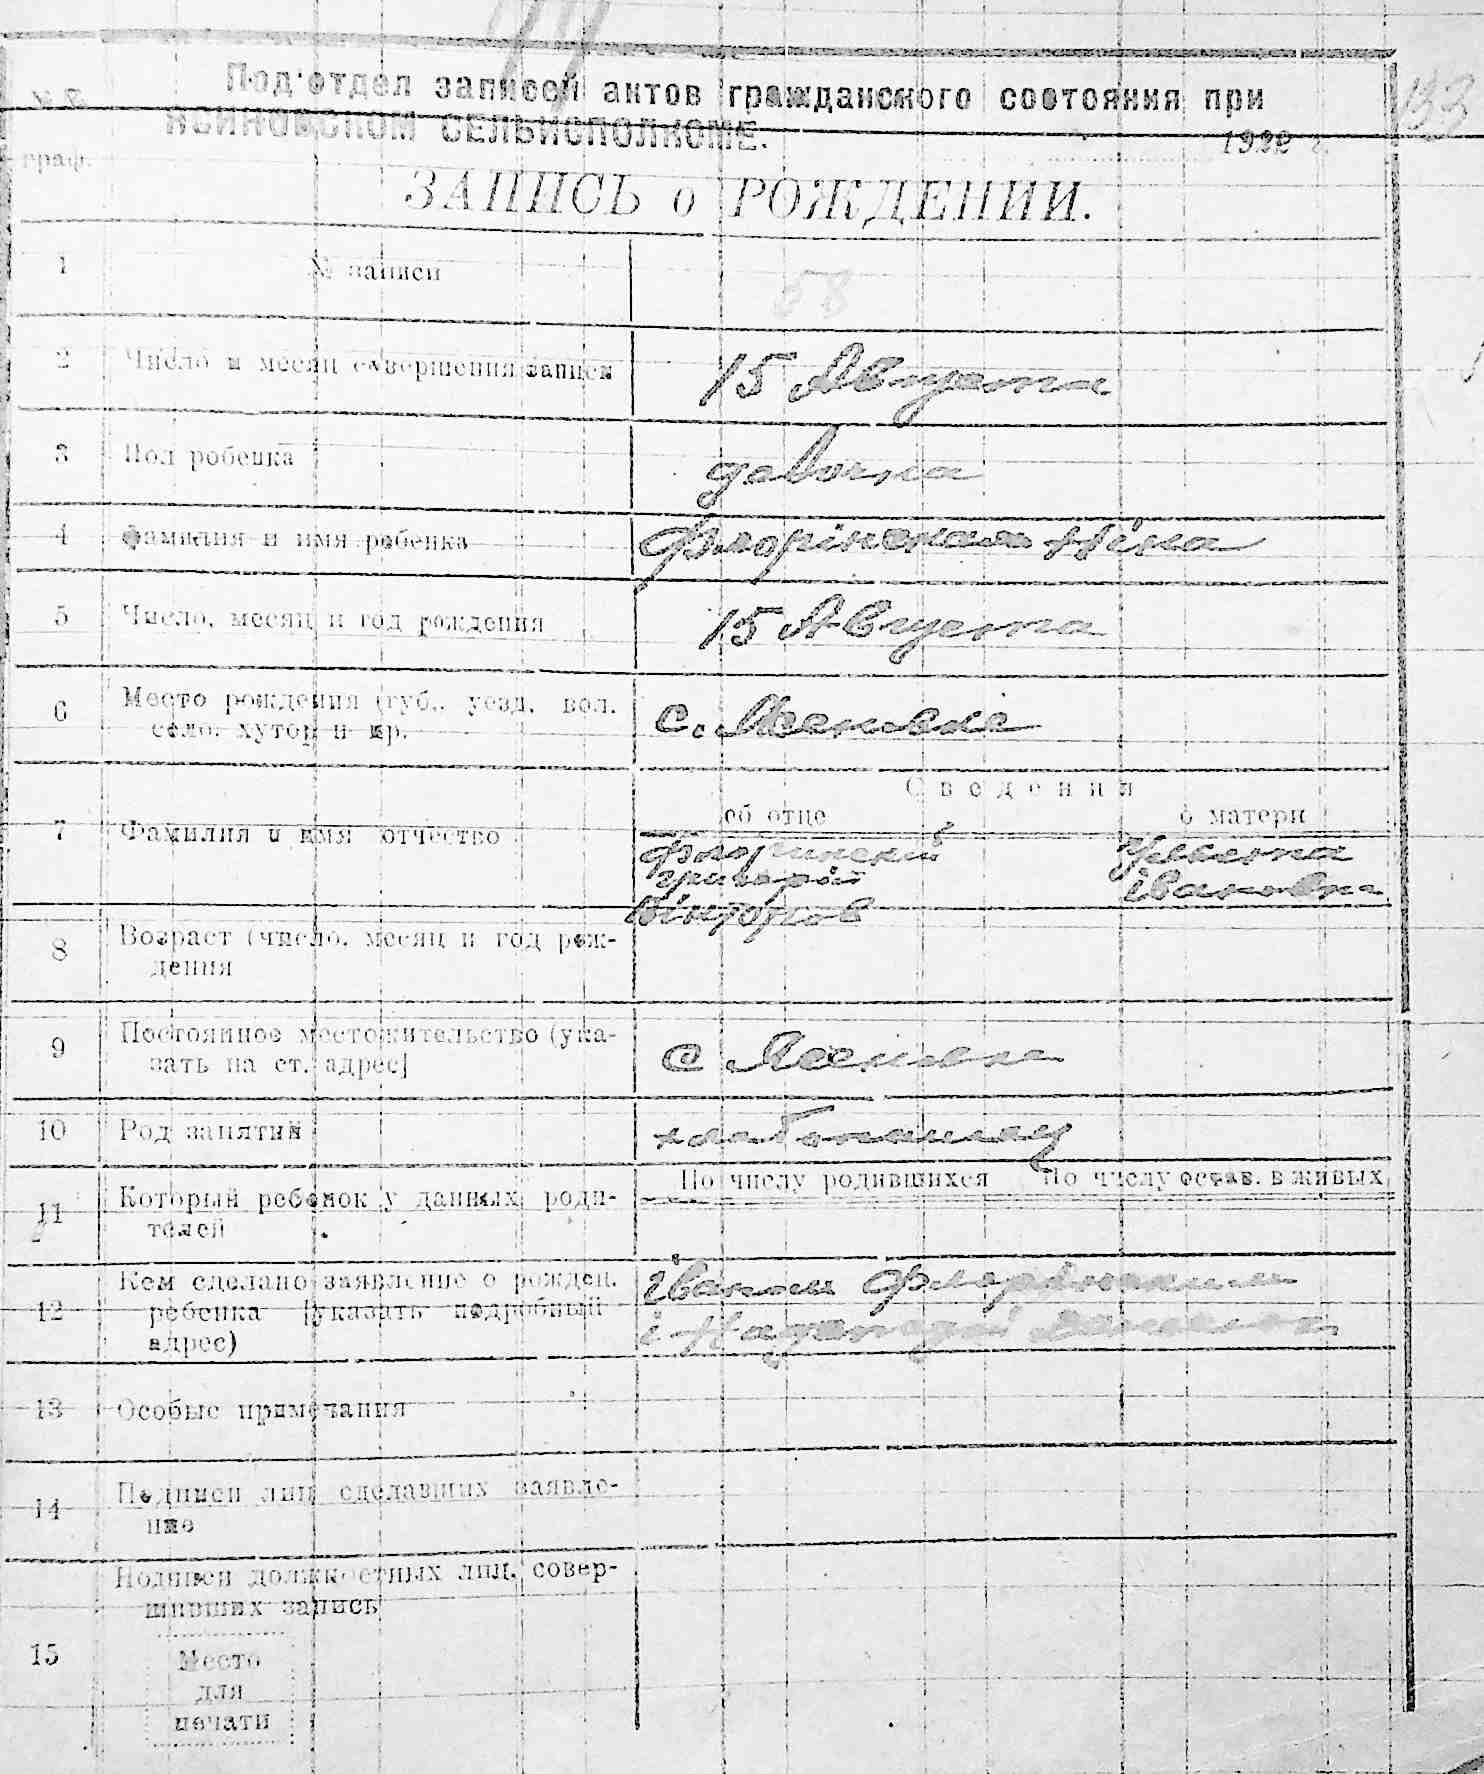 Под'отдел записей актов гражданского состояния при
ЯСИНОВСКОМ СЕЛЬИСПОЛКОМЕ.
133
1922 г.
граф.
ЗАПИСЬ о РОЖДЕНИИ.
1 № записи 58
2 Число и месяц совершения записи 15 Августа
3 Пол ребенка девочка
4 Фамилия и имя ребенка Флорінская Ніна
5 Число, месяц и год рождения 15 Августа
6 Место рождения (губ., уезд, вол.
село, хутор и пр. с. Ясеновке
Сведения
об отце о матери
7 Фамилия и имя отчество Флоринский
Григорій Івановна
Вікторов
8 Возраст (число, месяц и год рож-
дения
9 Постоянное местожительство (ука-
зать на ст. адрес] с Ясеновке
10 Род занятий хлебопашец
По числу родившихся По числу остав. в живых
11 Который ребенок у данных роди-
телей
12 Кем сделано заявление о рожден. Іваном Флорінским
ребенка [указать подробный і
адрес)
13 Особые примечания
14 Подписи лиц сделавших заявле-
ние
Подписи должностных лиц, совер-
шивших запись
15 Место
для
печати